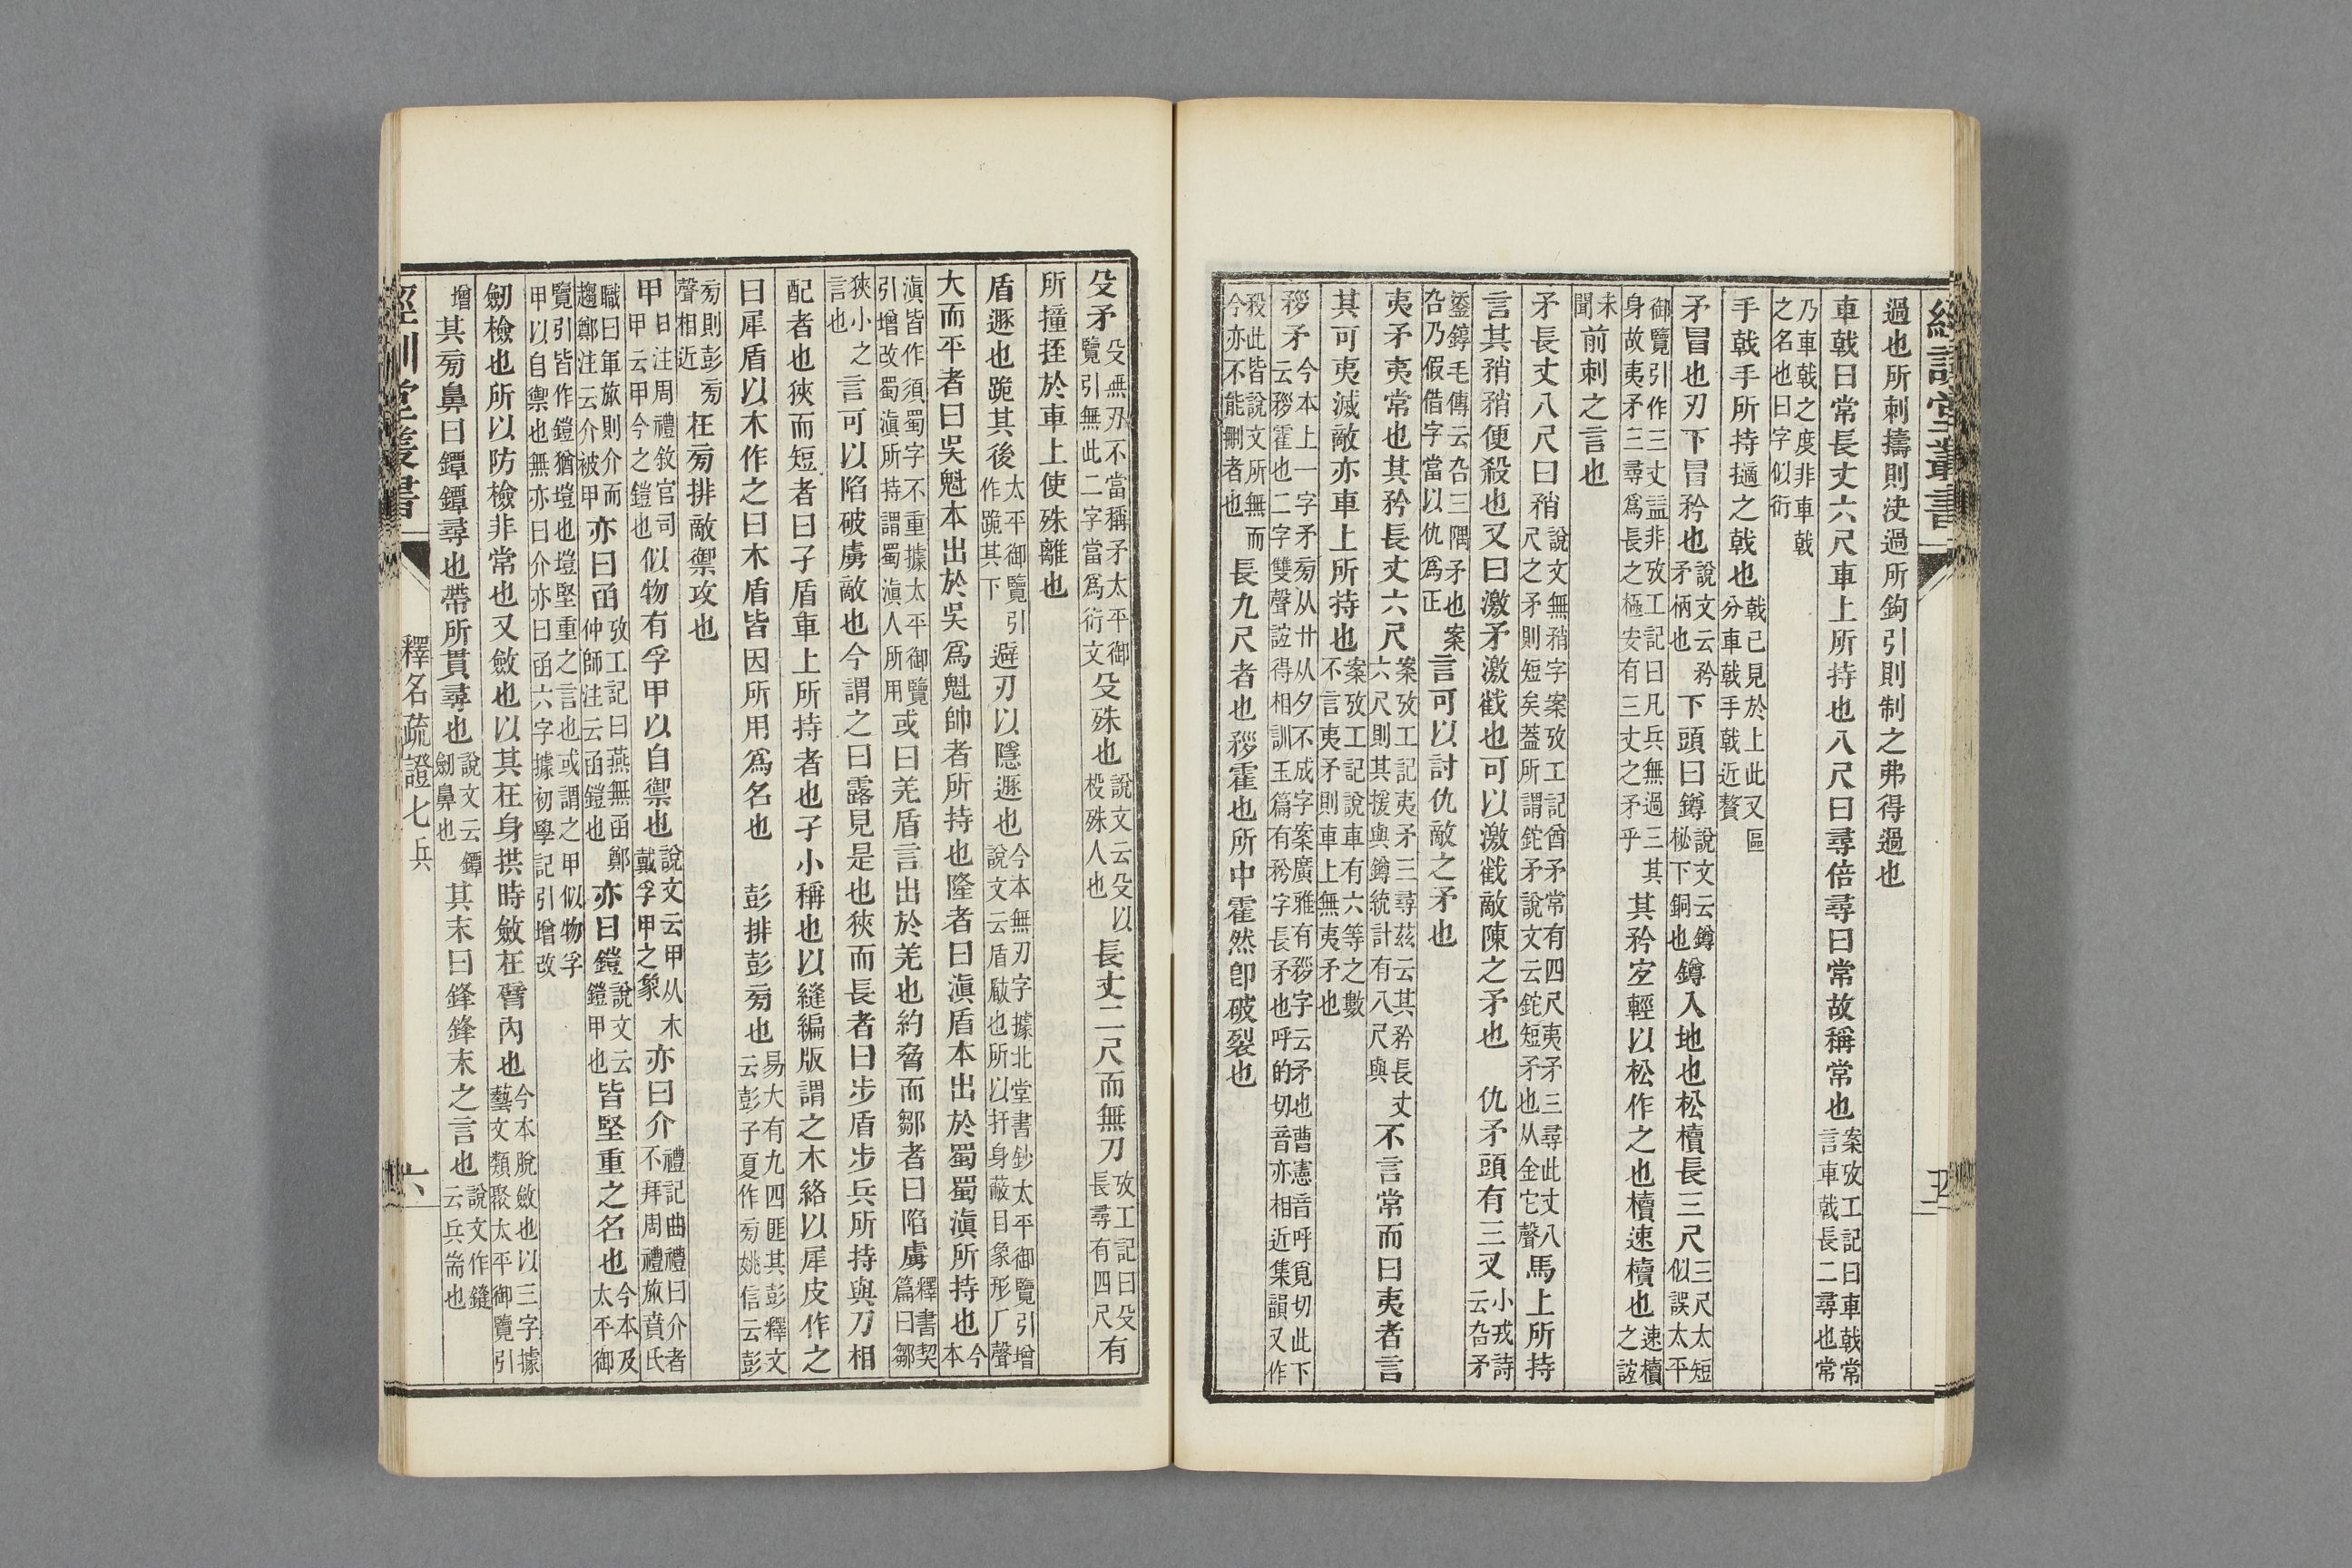 經訓堂叢書
過也所刺擣則決過所鉤引則制之弗得過也
車戟曰常長丈六尺車上所持也八尺曰尋倍尋曰常故稱常也案攷工記曰車戟常
言車戟長二尋也常
乃車戟之度非車戟
之名也曰字似衍
手戟手所持擿之戟也戟已見於上此又區
分車戟手戟近贅
矛冒也刃下冒矜也說文云矜
矛柄也下頭曰鐏說文云鐏
柲下銅也鐏入地也松櫝長三尺三尺太短
似誤太平
御覽引作三丈葢非攷工記曰凡兵無過三其
身故夷矛三尋爲長之極安有三丈之矛乎其矜宐輕以松作之也櫝速櫝也速櫝
之誼
未
聞前刺之言也
矛長丈八尺曰矟說文無矟字案攷工記酋矛常有四尺夷矛三尋此丈八
尺之矛則短矣蓋所謂鉈矛說文云鉈短矛也从金它聲馬上所持
言其矟矟便殺也又曰激矛激截也可以激截敵陳之矛也　仇矛頭有三叉小戎詩
云厹矛
鋈錞毛傳云厹三隅矛也案
厹乃假借字當以仇爲正言可以討仇敵之矛也
夷矛夷常也其矜長丈六尺案攷工記夷矛三尋茲云其矜長丈
六尺則其援與鐏統計有八尺與不言常而曰夷者言
其可夷滅敵亦車上所持也案攷工記說車有六等之數
不言夷矛則車上無夷矛也
䂆矛今本上一字矛旁从廾从夕不成字案廣雅有䂆字云矛也曹憲音呼覓切此下
云䂆霍也二字雙聲誼得相訓玉篇有矜字長矛也呼的切音亦相近集韻又作
𥍨此皆說文所無而
今亦不能刪者也長九尺者也䂆霍也所中霍然卽破裂也
殳矛殳無刃不當稱矛太平御
覽引無此二字當爲衍文殳殊也說文云殳以
杸殊人也長丈二尺而無刀攷工記曰殳
長尋有四尺有
所撞挃於車上使殊離也
盾遯也跪其後太平御覽引
作跪其下避刃以隱遯也今本無刃字據北堂書鈔太平御覽引增
說文云盾瞂也所以扞身蔽目象形厂聲
大而平者曰吳魁本出於吳爲魁帥者所持也隆者曰滇盾本出於蜀蜀滇所持也今
本
滇皆作須蜀字不重據太平御覽
引增改蜀滇所持謂蜀滇人所用或曰羌盾言出於羌也約脅而鄒者曰陷虜釋書契
篇曰鄒
狹小之
言也言可以陷破虜敵也今謂之曰露見是也狹而長者曰步盾步兵所持與刀相
配者也狹而短者曰孑盾車上所持者也孑小稱也以縫編版謂之木絡以犀皮作之
曰犀盾以木作之曰木盾皆因所用爲名也　彭排彭旁也易大有九四匪其彭釋文
云彭子夏作旁姚信云彭
旁則彭旁
聲相近在旁排敵禦攻也
甲甘注周禮敘官司
甲云甲今之鎧也似物有孚甲以自禦也說文云甲从木
戴孚甲之象亦曰介禮記曲禮曰介者
不拜周禮旅賁氏
職曰軍旅則介而
趨鄭注云介被甲亦曰函攷工記曰燕無函鄭
仲師注云函鎧也亦曰鎧說文云
鎧甲也皆堅重之名也今本及
太平御
覽引皆作鎧猶塏也塏堅重之言也或謂之甲似物孚
甲以自禦也無亦曰介亦曰函六字據初學記引增改
劒檢也所以防檢非常也又斂也以其在身拱時斂在臂內也今本脫斂也以三字據
藝文類聚太平御覽引
增其旁鼻曰鐔鐔尋也帶所貫尋也說文云鐔
劒鼻也其末曰鋒鋒末之言也說文作鏠
云兵耑也
經訓堂叢書
釋名疏證七兵
六